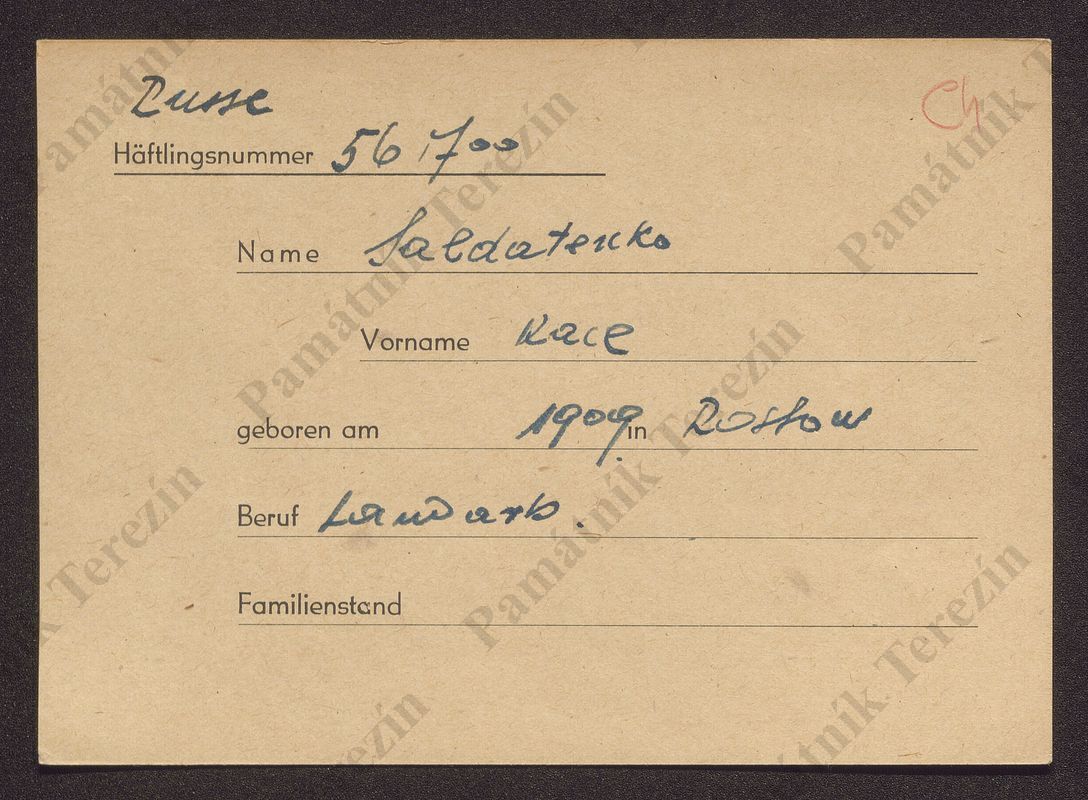 Russe
Ch
Häftlingsnummer 56 700
Name Saldatenko
Vorname Karl
geboren am 1909 in Rostow
Beruf Landarb.
Familienstand
Památník Terezín